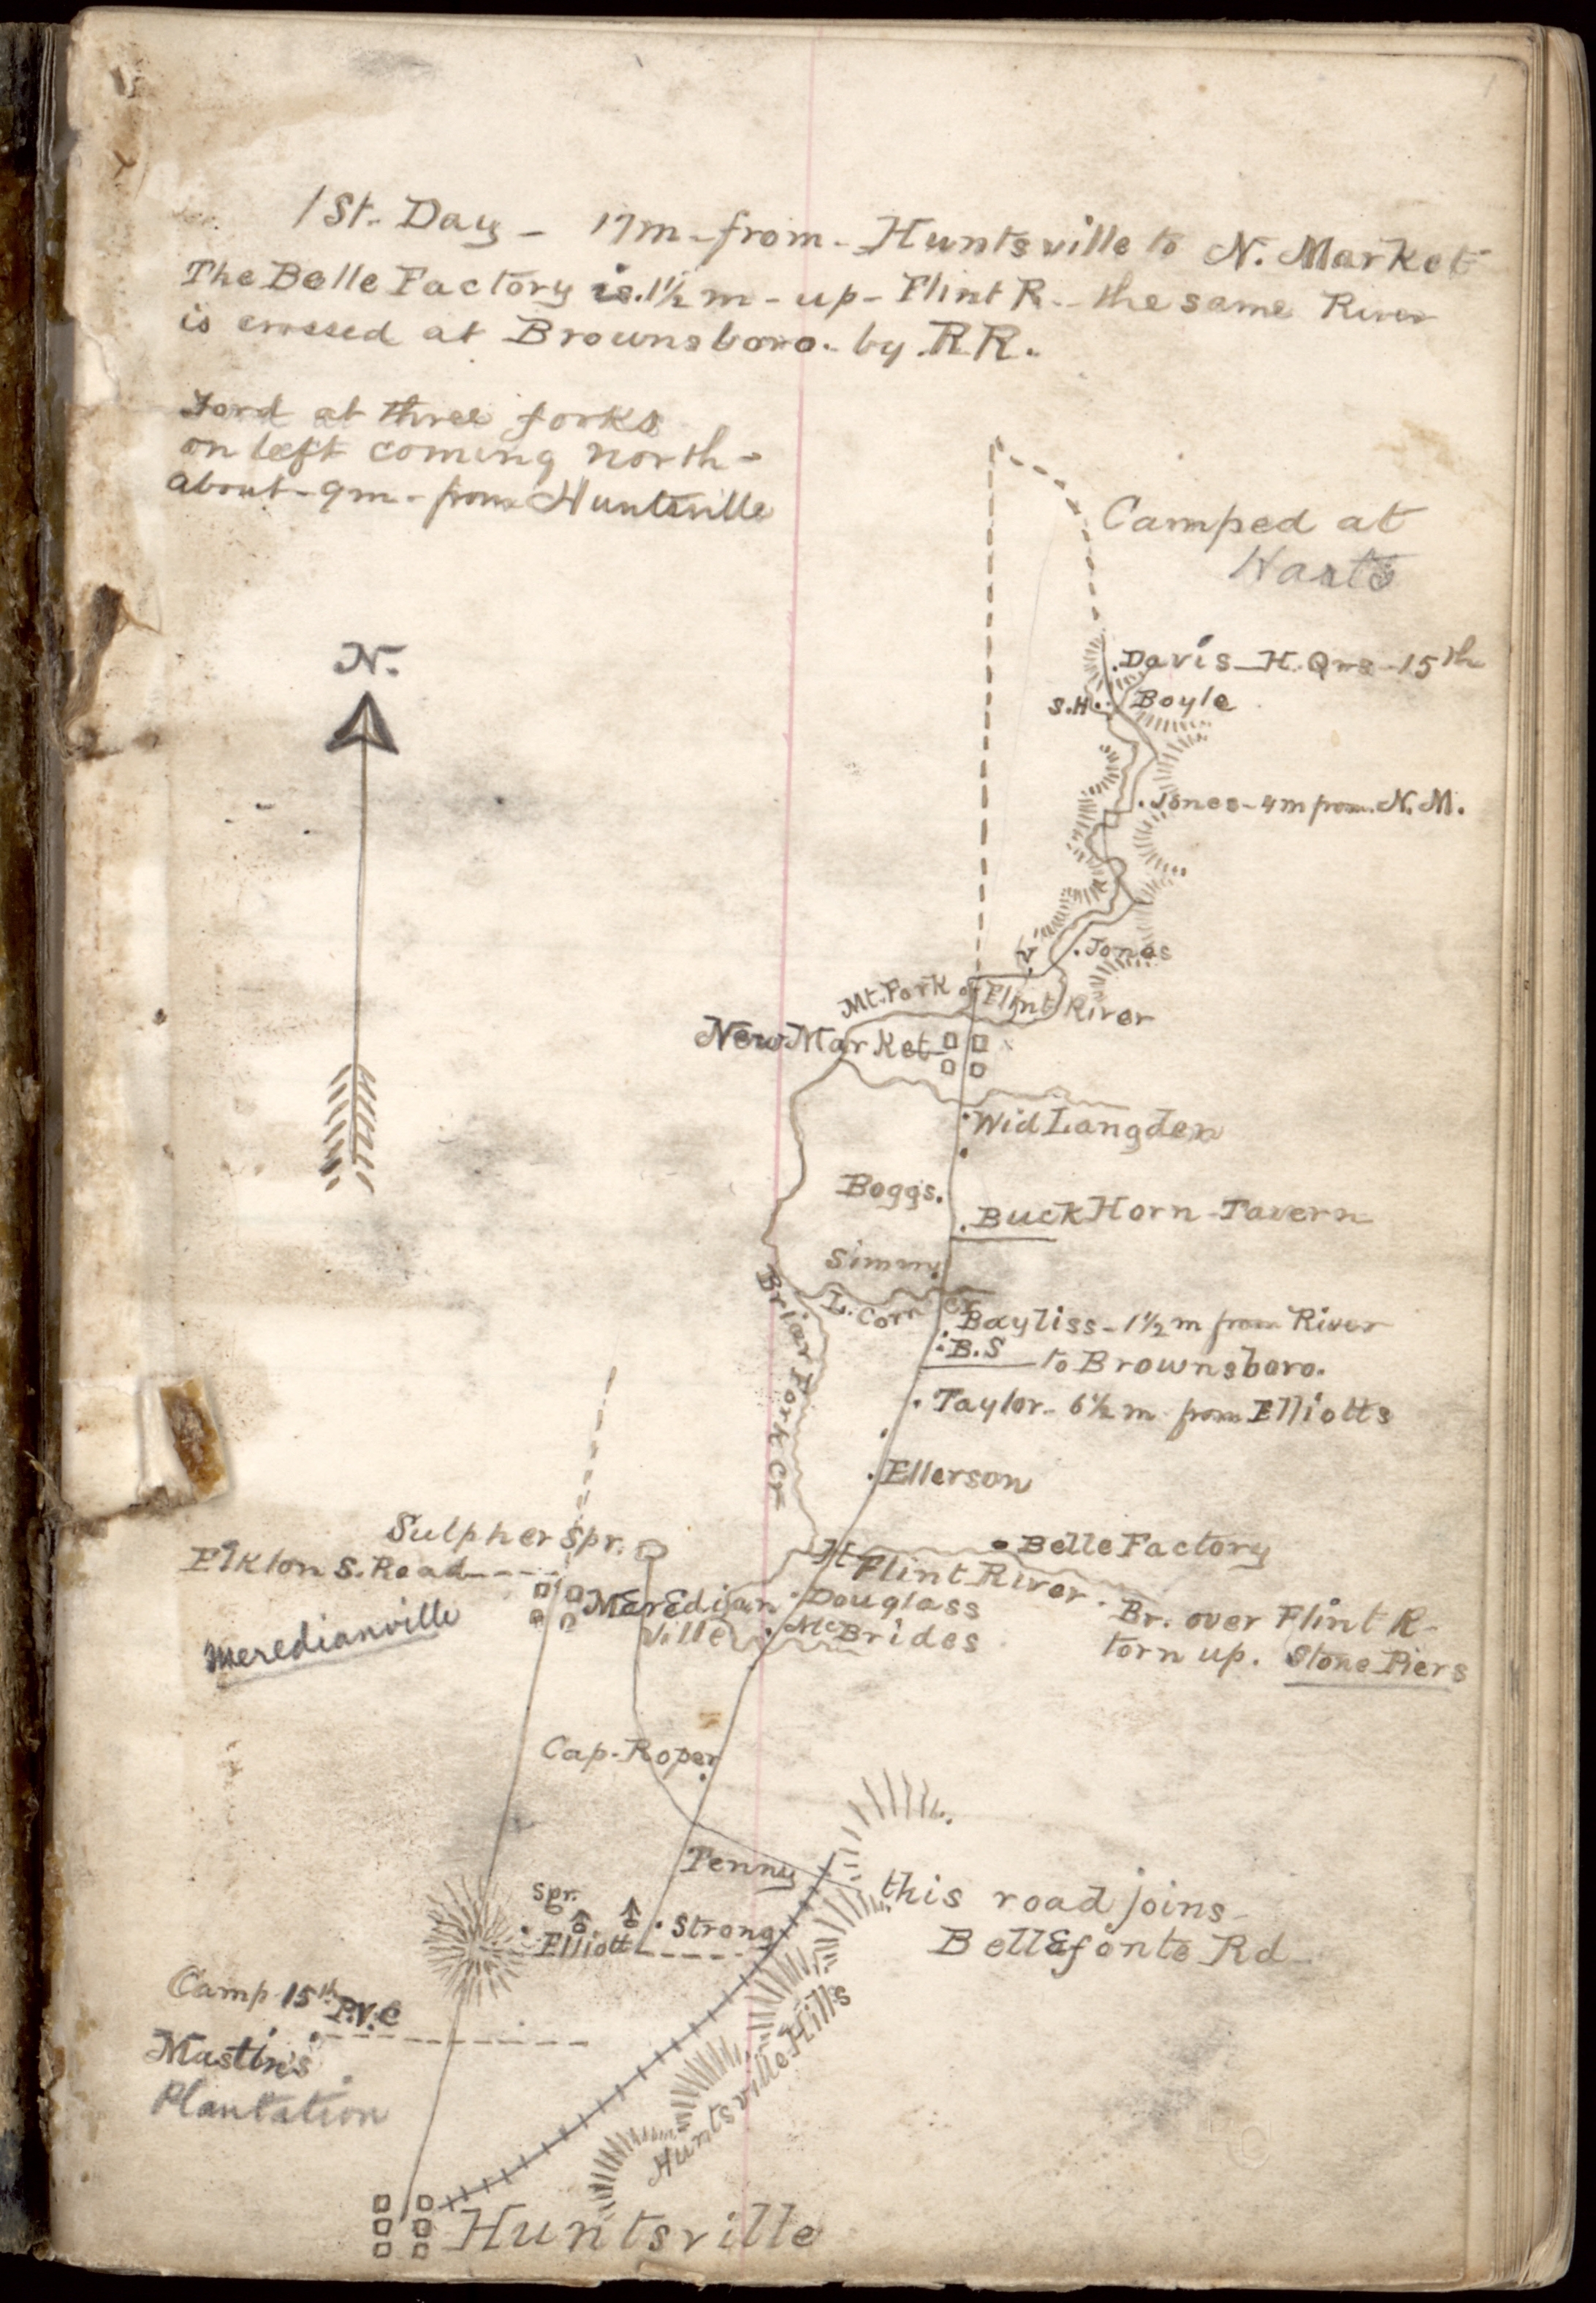 1st. Day - 17m - from - Huntsville to N. Market
The Belle Factory is. 1½ m - up - Flint R. - the same River
is crossed at Brownsboro. by R R.
Ford at three forks
on left coming north -
about - 9m - from Huntsville
Camped at
Harts
N.
Davis - H. Qrs - 15th
S.H. Boyle
Jones - 4m from N. M.
Jonas
Mt. Fork of Flint River
New Market
Wid Langden
Boggs.
Buck Horn - Tavern
Simm
L. Corn Cr
Brier Fork Cr
Bayliss - 1½ m from River
B.S to Brownsboro.
Taylor - 6½ m from Elliotts
Ellerson
Sulpher Spr.
Elkton S. Road
Belle Factory
Flint River.
Meredian
ville
Douglass
McBrides
Br. over Flint R -
torn up. Stone Piers
Meredianville
Cap - Roper
Tenny
this road joins -
Bellefonte Rd -
Spr.
Elliott
Strong
Camp 15th P.V.C
Mastin's
Plantation
Huntsville Hills
Huntsville